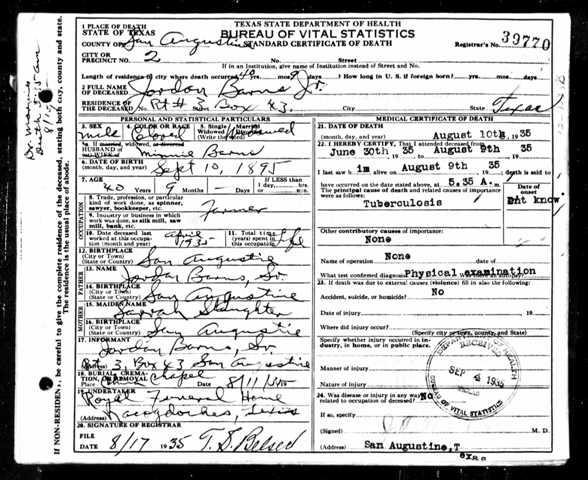 TEXAS STATE DEPARTMENT OF HEALTH
BUREAU OF VITAL STATISTICS
STANDARD CERTIFICATE OF DEATH
1 PLACE OF DEATH
STATE OF TEXAS
COUNTY OF San Augustine
CITY OR PRECINCT NO. 2
Street
Registrar's No. 39770
If in an Institution, give name of Institution instead of Street and No.
Length of residence in city where death occurred 40 yrs. 9 mos.
How long in U. S. if foreign born? yrs. mos. ds.
2 FULL NAME OF DECEASED Jordan Barns Jr.
RESIDENCE OF THE DECEASED Rt # 3 Box 43. City State Texas
PERSONAL AND STATISTICAL PARTICULARS
3. SEX male
4. COLOR OR RACE Colored
5. Single Married Widowed Divorced (Write the word) Married
5a. If married, widowed, or divorced
HUSBAND OF (or) WIFE OF Minnie Barns
6. DATE OF BIRTH Sept 10, 1895
7. AGE 40 Years 9 Months Days
If LESS than 1 day, hrs. min.
8. Trade, profession, or particular kind of work done, as spinner, sawyer, bookkeeper, etc. Farmer
9. Industry or business in which work was done, as silk mill, saw mill, bank, etc.
10. Date deceased last worked at this occupation (month and year) April 1935
11. Total time (years) spent in this occupation life
12. BIRTHPLACE (City or Town) (State or County) San Augustine
FATHER
13. NAME Jordan Barns, Sr.
14. BIRTHPLACE (City or Town) (State or County) San Augustine
MOTHER
15. MAIDEN NAME Sarrah Slaughter
16. BIRTHPLACE (City or Town) (State or County) San Augustine
17. INFORMANT Jordan Barns, Sr.
Rt 3 Box 43 San Augustine
18. BURIAL, CREMATION, OR REMOVAL Chapel 8/11/35
19. UNDERTAKER Royal Funeral Home
(Address) Nacogdoches, Texas
20. SIGNATURE OF REGISTRAR
FILE DATE 8/17 1935 T. S. Belsed
MEDICAL CERTIFICATE OF DEATH
21. DATE OF DEATH August 10th, 1935
22. I HEREBY CERTIFY, That I attended deceased from
June 30th 1935 to August 9th 1935
I last saw h im alive on August 9th 1935; death is said to
have occurred on the date stated above, at 5.35 A. m.
The principal cause of death and related causes of importance were as follows:
Tuberculosis
Date of onset
Dnt know
Other contributory causes of importance:
None
Name of operation None
What test confirmed diagnosis? Physical examination
23. If death was due to external causes (violence) fill in also the following:
Accident, suicide, or homicide? No
Date of injury 19
Where did injury occur?
(Specify city or town, county, and State)
Specify whether injury occurred in industry, in home, or in public place.
Manner of injury
Nature of injury
24. Was disease or injury in any way related to occupation of deceased? No
If so, specify
(Signed) M. D.
(Address) San Augustine, T
exas
DEPARTMENT OF HEALTH
RECEIVED
SEP 1935
BUREAU OF VITAL STATISTICS
IF NON-RESIDENT, be careful to give the complete residence of the deceased, stating both city, county and state.
The residence is the usual place of abode.